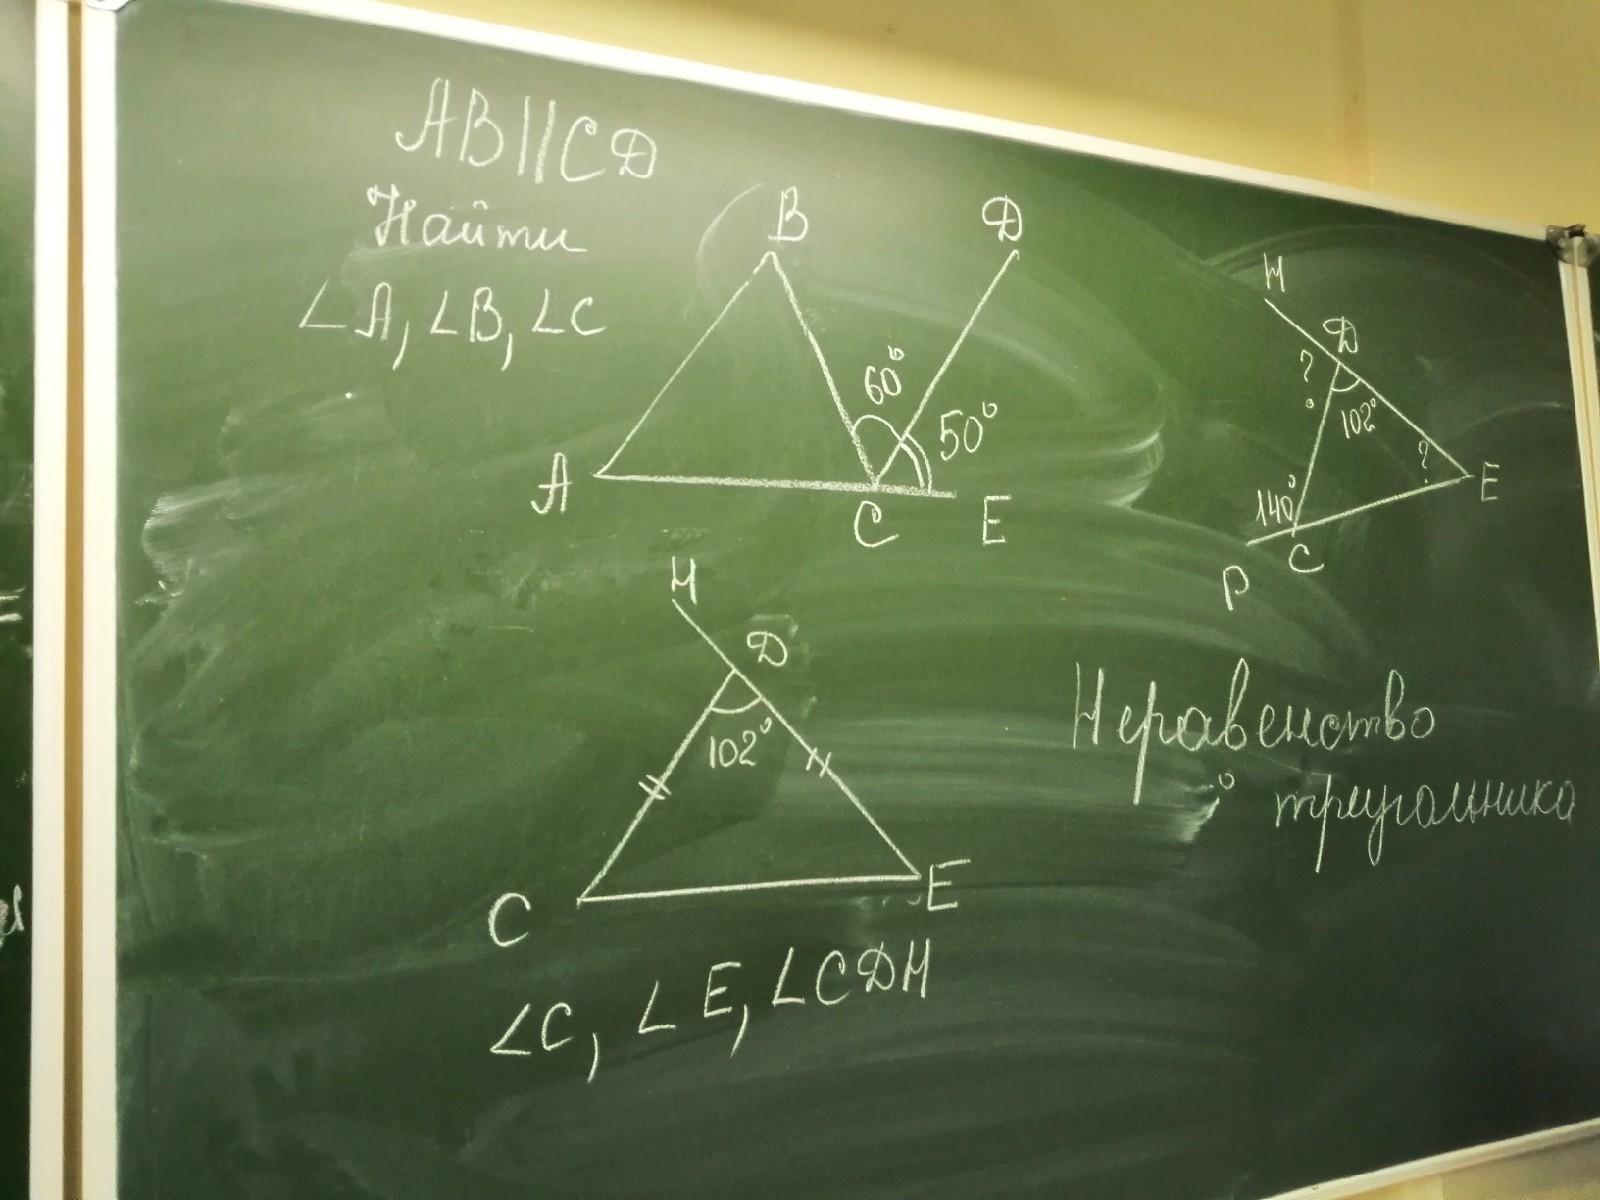 AB||CD
Найти
∠A, ∠B, ∠C
B
D
60°
50°
A
C
E
H
D
?
102°
?
E
140°
C
P
H
D
102°
C
E
∠C, ∠E, ∠CDH
Неравенство
треугольника